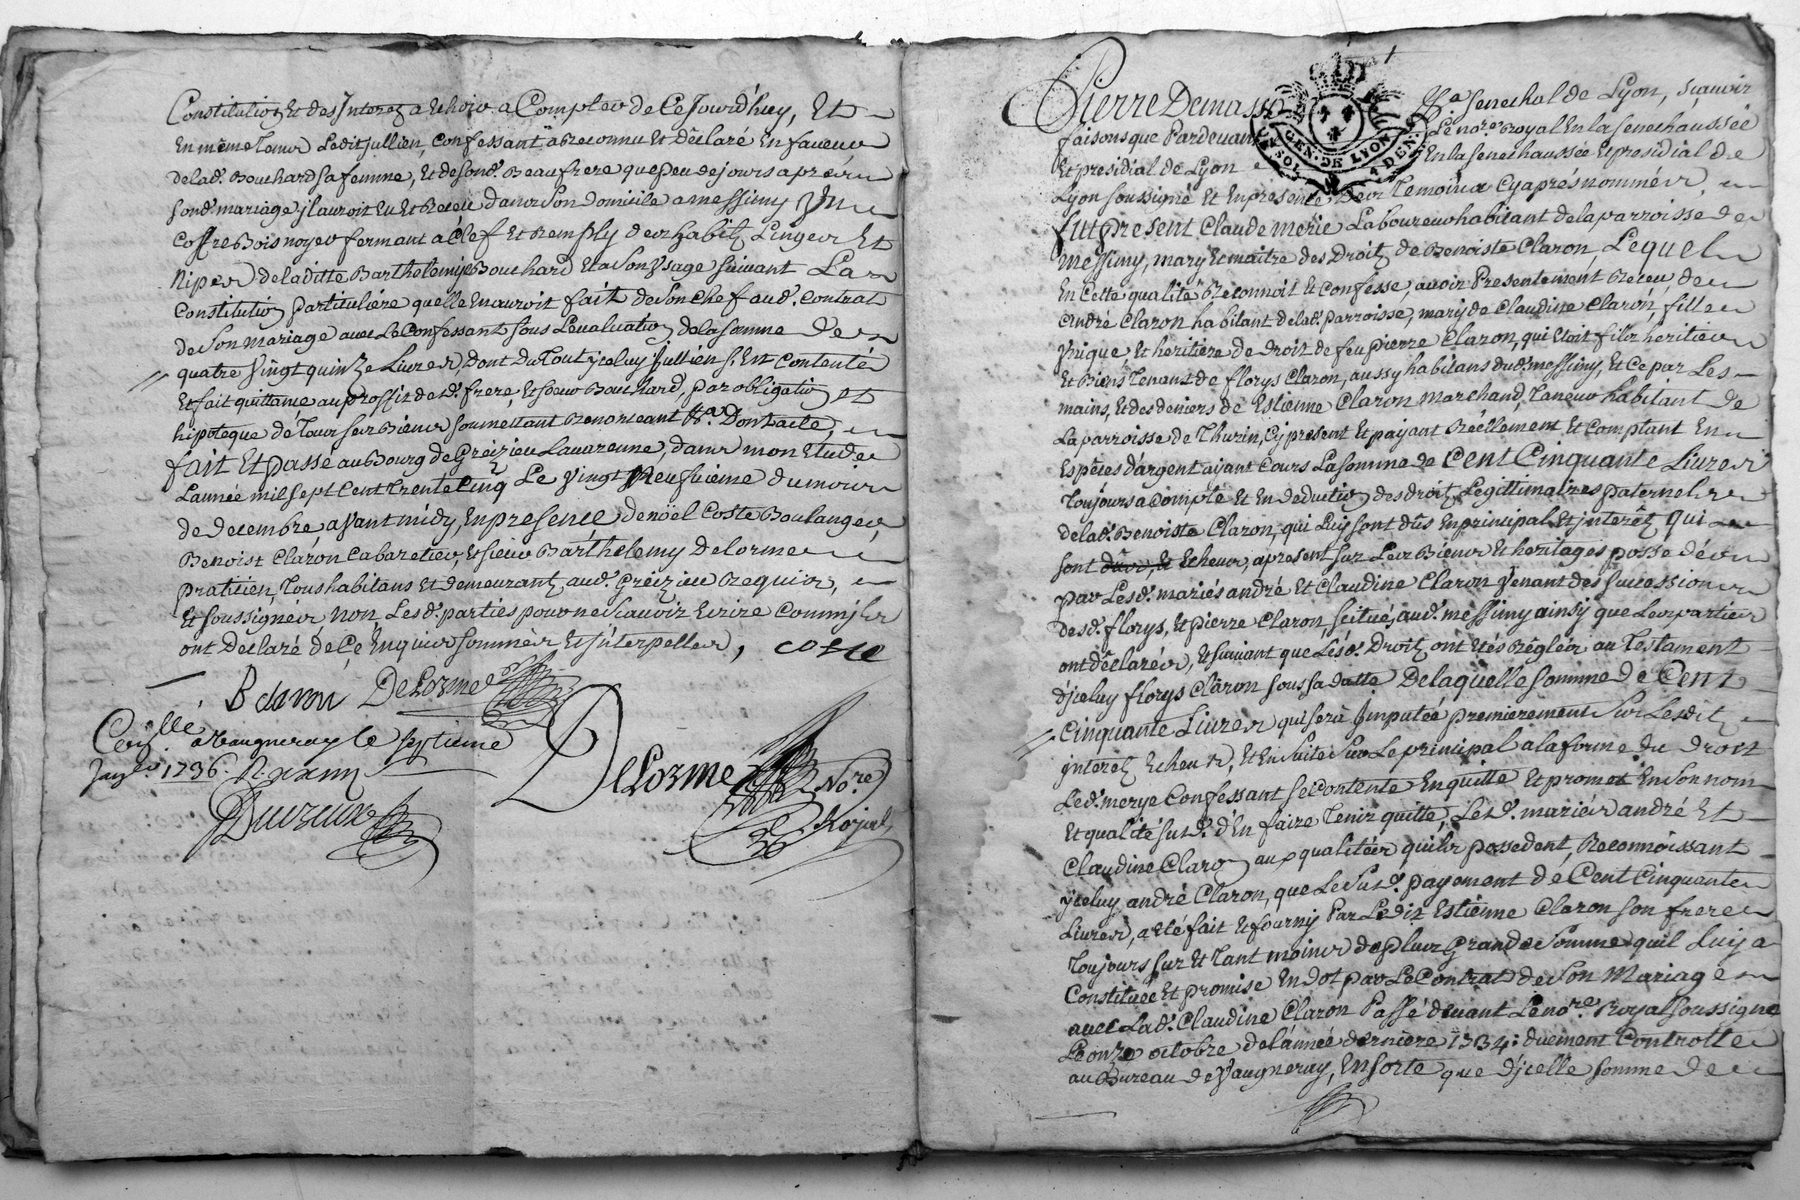 Constitution Et des Interez a Echoir a Compter de Ce Jourd'huy, Et
En même Tems Ledit Jullien, Confessant a Reconnu Et Déclaré En faveur
de lad. Bouchard sa femme, Et de sond. Beaufrere que peu de jours apres
sond. mariage jl auroit Eu Et Receu dans son domicile a messimy Un
Coffre Bois noyer fermant a Clef Et Remply des habitz Linges Et
Nipes de laditte Barthelemye Bouchard Et a son Usage suivant La
Constitution particuliere quelle En auroit fait de son Chef aud. Contrat
de son mariage avec Le Confessant sous L'evaluation de la somme de
quatre Vingt quinze Livres, dont du Tout jceluy Jullien s'Est Contenté
Et fait quittance au proffit desd. frere, Et soeur Bouchard, par obligation Et
hipoteque de Tous ses Biens soumettant Renonceant &a. Dont acte,
fait Et passé au Bourg de Greizieu Lavarenne, dans mon Etude
L'année mil sept Cent Trente Cinq Le Vingt Neufvieme du mois
de decembre avant midy, En presence de noël Coste Boulanger,
Benoist Claron Cabaretier, Et sieur Barthelemy Delorme
praticien, Tous habitans Et demeurantz aud. Greizieu Requis,
Et soussignés non Lesd. parties pour ne sçavoir Ecrire Comm'jls
ont Declaré de Ce Enquis sommés Et jnterpellés, coste
B claron Delorme
Conllé a Vaugneray le septieme
Janv. 1736.
Delorme No.re
Royal
Pierre Demasso &a. Senechal de Lyon, sçavoir
faisons que Pardevant Le no.re Royal En la Senechaussée
Et presidial de Lyon En la senechaussée Et presidial de
GEN. DE LYON
Lyon soussigné Et En presence Des Temoins Cy aprés nommés,
fut present Claude merie Laboureur habitant de la parroisse de
messimy, mary Et maître des Droitz de Benoiste Claron, Lequel
En Cette qualité Reconnoit Et Confesse, avoir Presentement Receu, de
andré Claron habitant de lad. parroisse, mary de Claudine Claron, fille
Unique Et heritiere de droit de feu pierre Claron, qui Etoit fils heritier
Et Biens Tenant de florys Claron, aussy habitans dud. messimy, Et Ce par Les
mains, Et des deniers de Estienne Claron marchand, Taneur habitant de
La parroisse de Thurin, Cy present Et payant Réellement Et Comptant En
Especes d'argent ayant Cours La somme de Cent Cinquante Livres
Toujours a Compte Et En deduction des droitz Legittimaires paternels
de lad. Benoiste Claron, qui Luy sont dûs En principal Et jnterêtz qui
sont dûs, Et Echeus, a present sur Les Biens Et heritages possedés
par Lesd. mariés andré Et Claudine Claron Venant des successions
desd. florys, Et pierre Claron scitués, aud. messimy ainsy que Les parties
ont déclarés, Et suivant que Lesd. Droitz ont Etés Réglés au Testament
d'jceluy florys Claron sous sa datte De laquelle somme de Cent
Cinquante Livres qui sera Jmputée premierement sur Lesditz
jnteretz Echeus, Et En suite sur Le principal a la forme du droit
Led. merye Confessant se Contente En quitte Et promet En son nom
Et qualité susd. d'En faire Tenir quitte, Lesd. mariés andré Et
Claudine Claron aux qualités qu'ils possedent, Reconnoissant
jceluy andré Claron, que Le susd. payement de Cent Cinquante
Livres, a Eté fait Et fourny Par Ledit Estienne Claron son frere
Toujours sur Et Tant moins de plus Grande somme qu'il Luy a
Constituée Et promise En dot par Le Contrat de son Mariage
avec Lad. Claudine Claron Passé devant Le no.re Royal soussigné
Le onze octobre de l'année derniere 1734: duement Controlle
au Bureau de Vaugneray, En sorte que d'jcelle somme de